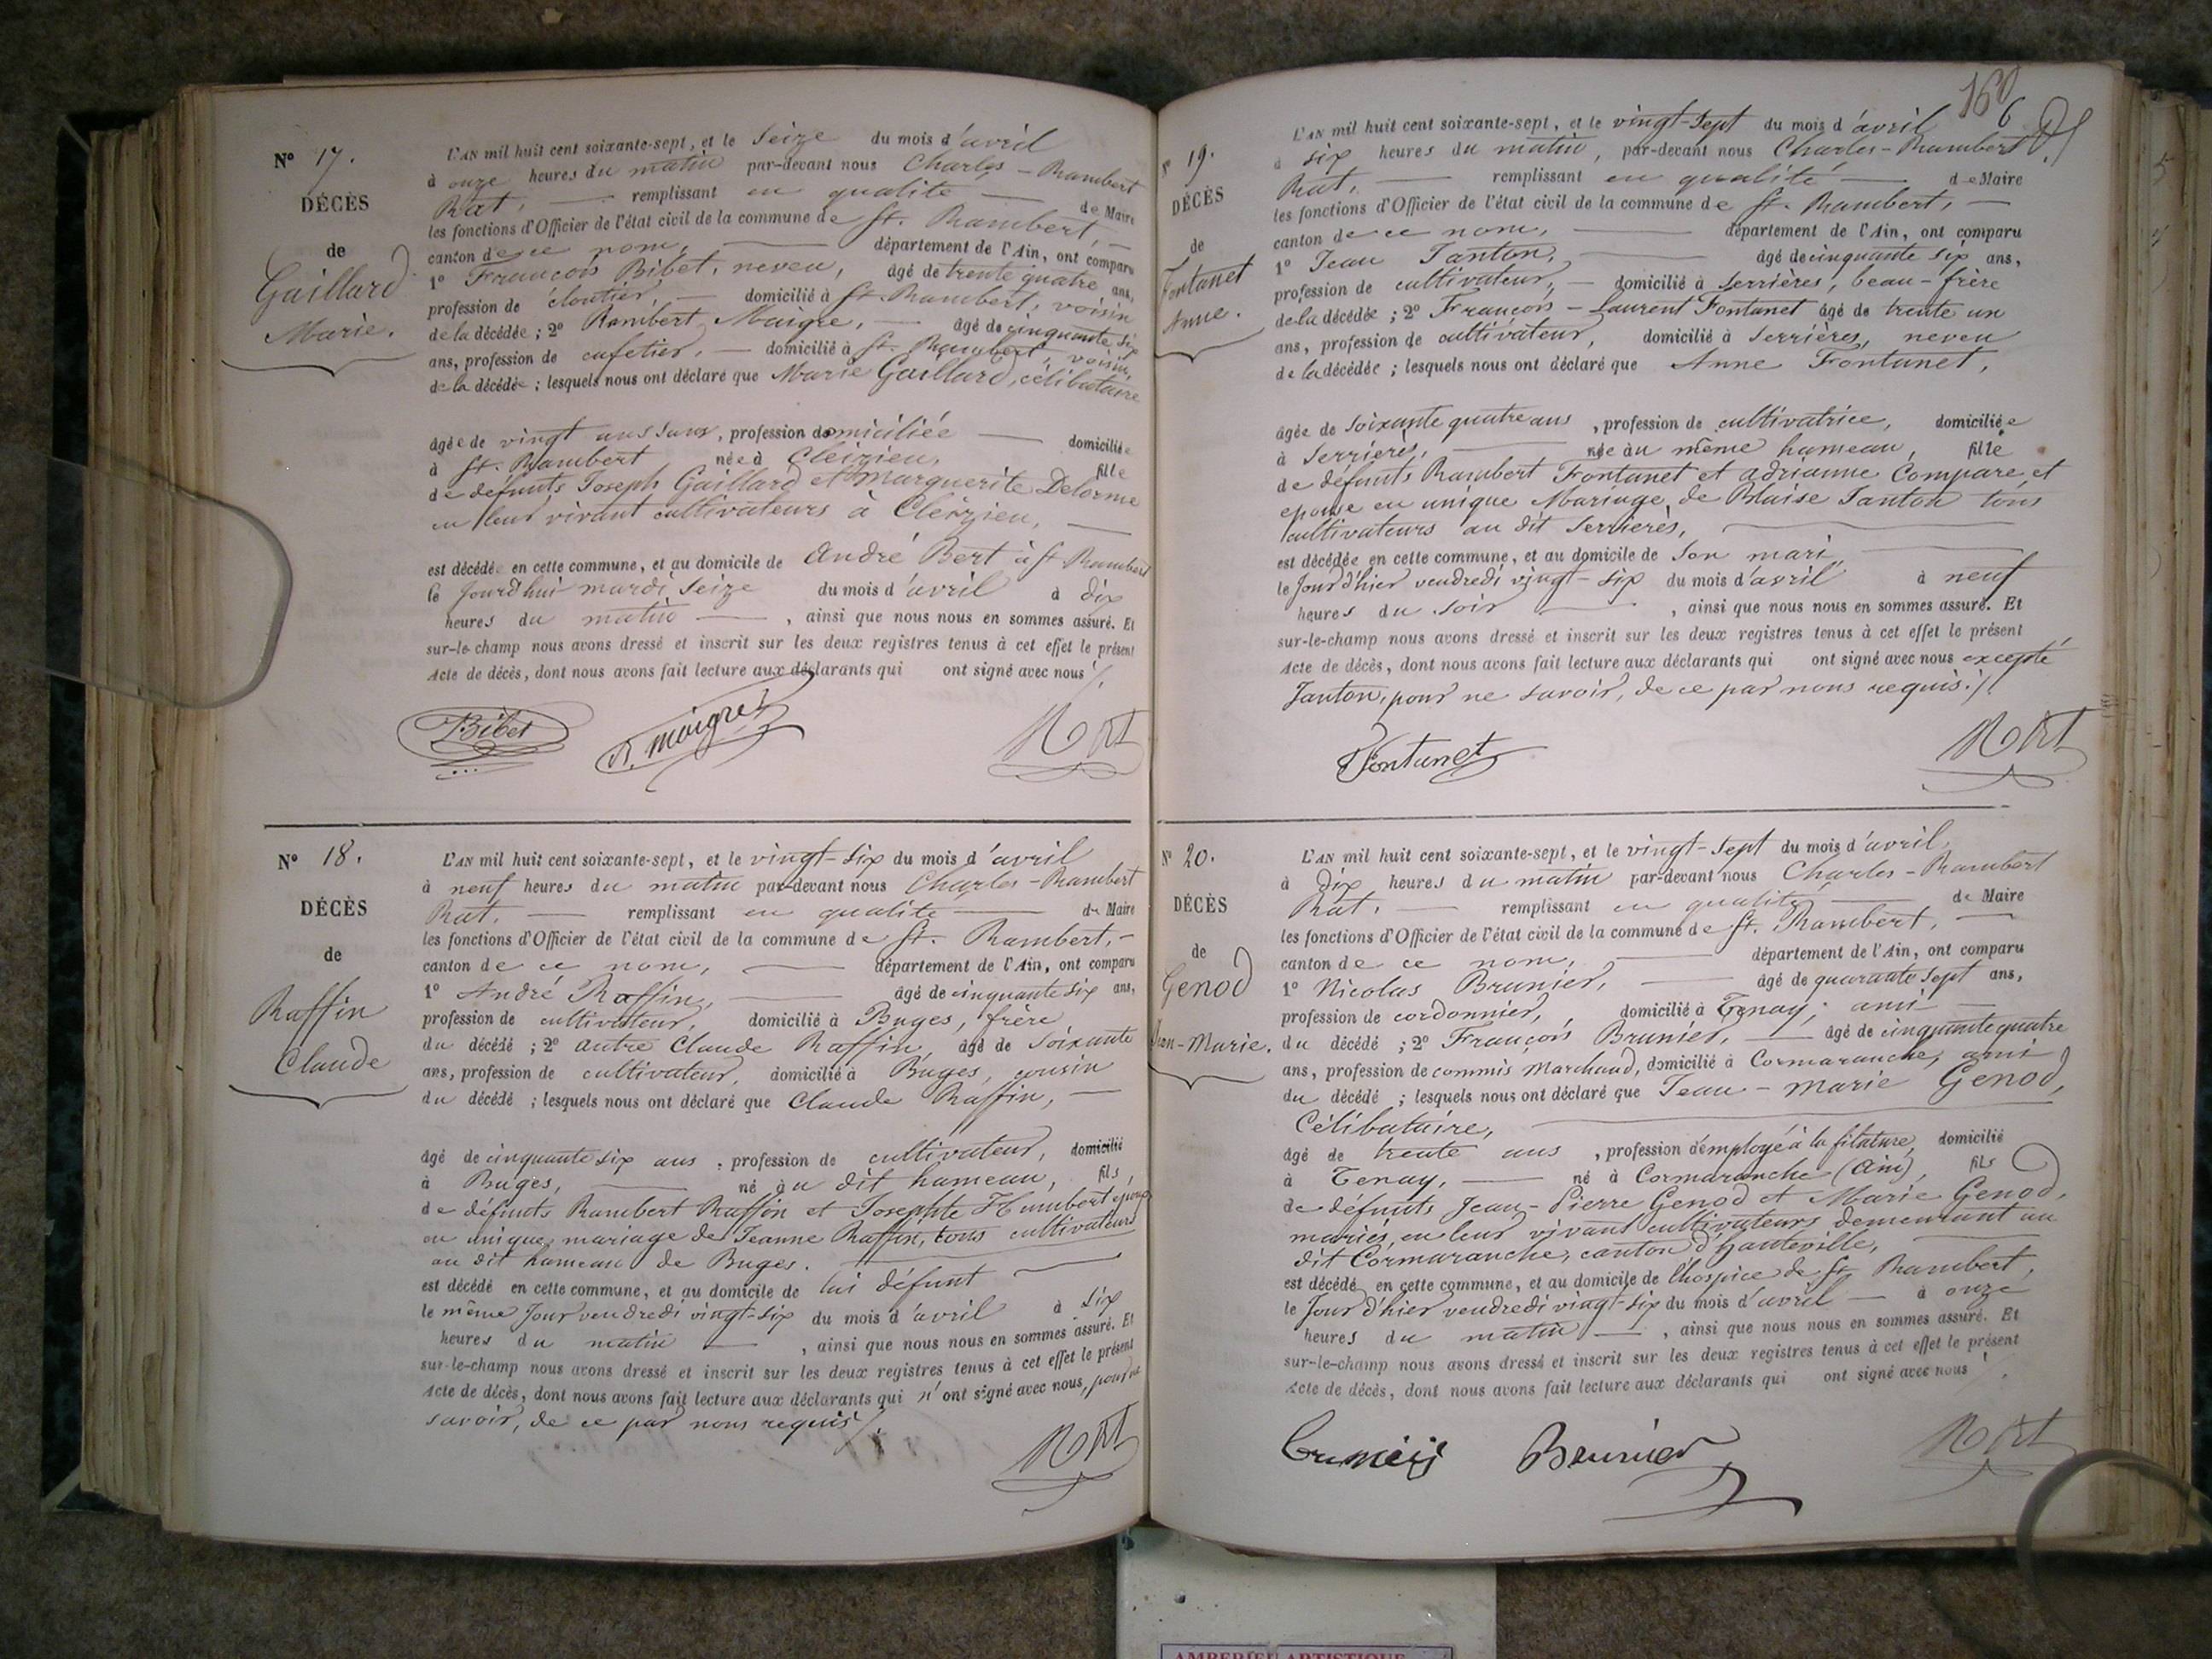 Nº 17.
DÉCÈS
de
Gaillard
Marie.
L'AN mil huit cent soixante-sept, et le Seize du mois d'avril
à onze heures du matin par-devant nous Charles-Rambert
Rat, remplissant en qualité de Maire
les fonctions d'Officier de l'état civil de la commune de St. Rambert,
canton de ce nom, département de l'Ain, ont comparu
1º François Bibet, neveu, âgé de trente quatre ans,
profession de cloutier, domicilié à St. Rambert, voisin
de la décédée ; 2º Rambert Maigre, âgé de cinquante six
ans, profession de cafetier, domicilié à St. Rambert, voisin,
de la décédée ; lesquels nous ont déclaré que Marie Gaillard, célibataire
âgée de vingt ans sans, profession domiciliée domiciliée
à St. Rambert née à Cleizieu, fille
de défunts Joseph Gaillard et Marguerite Delorme
en leur vivant cultivateurs à Cleizieu,
est décédée en cette commune, et au domicile de André Bert à St Rambert
le jourd'hui mardi seize du mois d'avril à dix
heures du matin , ainsi que nous nous en sommes assuré. Et
sur-le-champ nous avons dressé et inscrit sur les deux registres tenus à cet effet le présent
Acte de décès, dont nous avons fait lecture aux déclarants qui ont signé avec nous /.
Bibet R. Maigre Rat
Nº 18.
DÉCÈS
de
Raffin
Claude
L'AN mil huit cent soixante-sept, et le vingt-six du mois d'avril
à neuf heures du matin par-devant nous Charles-Rambert
Rat. remplissant en qualité de Maire
les fonctions d'Officier de l'état civil de la commune de St. Rambert,
canton de ce nom, département de l'Ain, ont comparu
1º André Raffin, âgé de cinquante six ans,
profession de cultivateur, domicilié à Buges, frère
du décédé ; 2º autre Claude Raffin, âgé de soixante
ans, profession de cultivateur, domicilié à Buges, cousin
du décédé ; lesquels nous ont déclaré que Claude Raffin,
âgé de cinquante six ans , profession de cultivateur, domicilié
à Buges, né au dit hameau, fils,
de défunts Rambert Raffin et Josephte Humbert, époux
en unique mariage de Jeanne Raffin, tous cultivateurs
au dit hameau de Buges.
est décédé en cette commune, et au domicile de lui défunt
le même jour vendredi vingt-six du mois d'avril à six
heures du matin , ainsi que nous nous en sommes assuré. Et
sur-le-champ nous avons dressé et inscrit sur les deux registres tenus à cet effet le présent
Acte de décès, dont nous avons fait lecture aux déclarants qui n'ont signé avec nous, pour ne
savoir, de ce par nous requis /.
Rat
160
6
Nº 19.
DÉCÈS
de
Fontanet
Anne.
L'AN mil huit cent soixante-sept, et le vingt-sept du mois d'avril
à six heures du matin, par-devant nous Charles-Rambert
Rat, remplissant en qualité de Maire
les fonctions d'Officier de l'état civil de la commune de St. Rambert,
canton de ce nom, département de l'Ain, ont comparu
1º Jean Janton, âgé de cinquante six ans,
profession de cultivateur, domicilié à Serrières, beau-frère
de la décédée ; 2º François-Laurent Fontanet âgé de trente un
ans, profession de cultivateur, domicilié à Serrières, neveu
de la décédée ; lesquels nous ont déclaré que Anne Fontanet,
âgée de soixante quatre ans , profession de cultivatrice, domiciliée
à Serrières, née au même hameau, fille
de défunts Rambert Fontanet et adrianne Compare, et
epouse en unique Mariage de Blaise Janton tous
cultivateurs au dit Serrières,
est décédée en cette commune, et au domicile de son mari,
le jour d'hier vendredi vingt-six du mois d'avril à neuf
heures du soir , ainsi que nous nous en sommes assuré. Et
sur-le-champ nous avons dressé et inscrit sur les deux registres tenus à cet effet le présent
Acte de décès, dont nous avons fait lecture aux déclarants qui ont signé avec nous excepté
Janton, pour ne savoir, de ce par nous requis. /
Fontanet Rat
Nº 20.
DÉCÈS
de
Genod
Jean-Marie.
L'AN mil huit cent soixante-sept, et le vingt-sept du mois d'avril,
à dix heures du matin par-devant nous Charles-Rambert
Rat. remplissant en qualité de Maire
les fonctions d'Officier de l'état civil de la commune de St. Rambert,
canton de ce nom, département de l'Ain, ont comparu
1º Nicolas Brunier, âgé de quarante sept ans,
profession de cordonnier, domicilié à Tenay, ami
du décédé ; 2º François Brunier, âgé de cinquante quatre
ans, profession de commis Marchand, domicilié à Cormaranche, ami
du décédé ; lesquels nous ont déclaré que Jean-Marie Genod,
Célibataire,
âgé de trente ans , profession d'employé à la filature, domicilié
à Tenay, né à Cormaranche (Ain), fils
de défunts Jean-Pierre Genod et Marie Genod,
mariés, en leur vivant cultivateurs demeurant au
dit Cormaranche, canton d'Hauteville,
est décédé en cette commune, et au domicile de l'hospice de St. Rambert,
le jour d'hier vendredi vingt-six du mois d'avril à onze
heures du matin , ainsi que nous nous en sommes assuré. Et
sur-le-champ nous avons dressé et inscrit sur les deux registres tenus à cet effet le présent
Acte de décès, dont nous avons fait lecture aux déclarants qui ont signé avec nous /.
Brunier Rat
AMBERIEU ARTISTIQUE